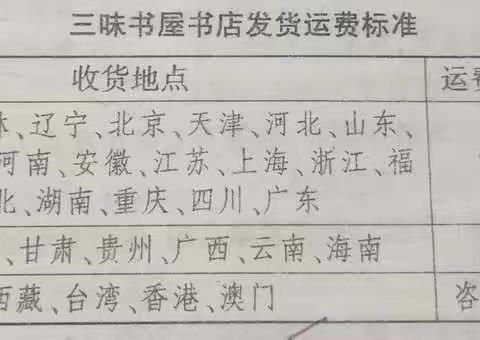 三味书屋书店发货运费标准
收货地点 运费
林、辽宁、北京、天津、河北、山东、
河南、安徽、江苏、上海、浙江、福
北、湖南、重庆、四川、广东
、甘肃、贵州、广西、云南、海南
西藏、台湾、香港、澳门 咨